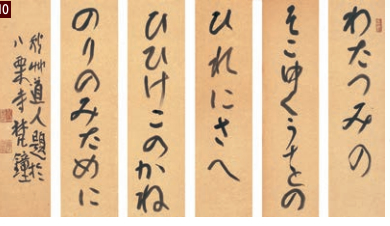 わたつみの
そこゆくうをの
ひれにさへ
ひひけこのかね
のりのみために
秋艸道人題於
八栗寺梵鐘
10